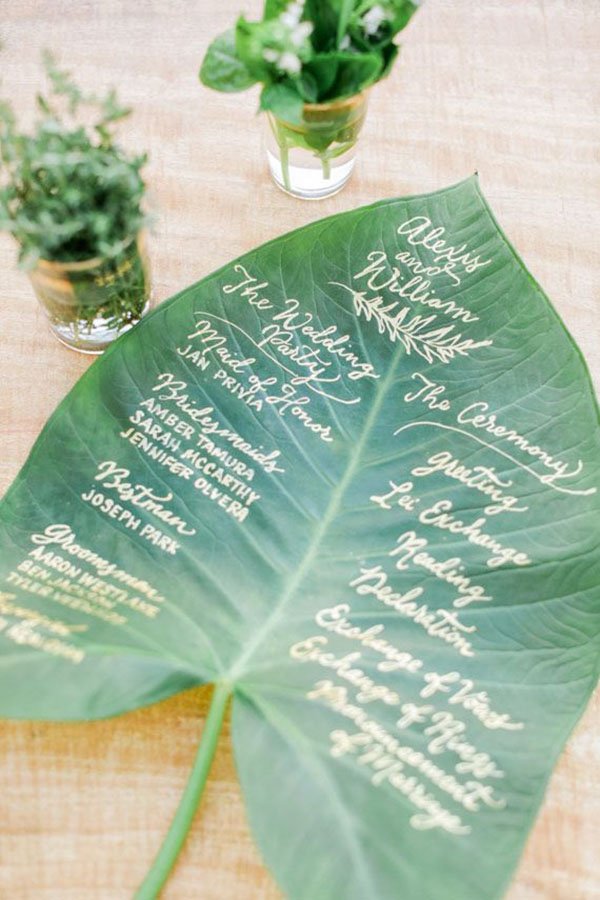 Alexis
and
William
The Wedding
Party
Maid of Honor
JAN PRIVIA
Bridesmaids
AMBER TAMURA
SARAH MCCARTHY
JENNIFER OLVERA
Bestman
JOSEPH PARK
Groomsmen
AARON
BEN JACKSON
TYLER
The Ceremony
Greeting
Lei Exchange
Reading
Declaration
Exchange of Vows
Exchange of Rings
Pronouncement
of Marriage